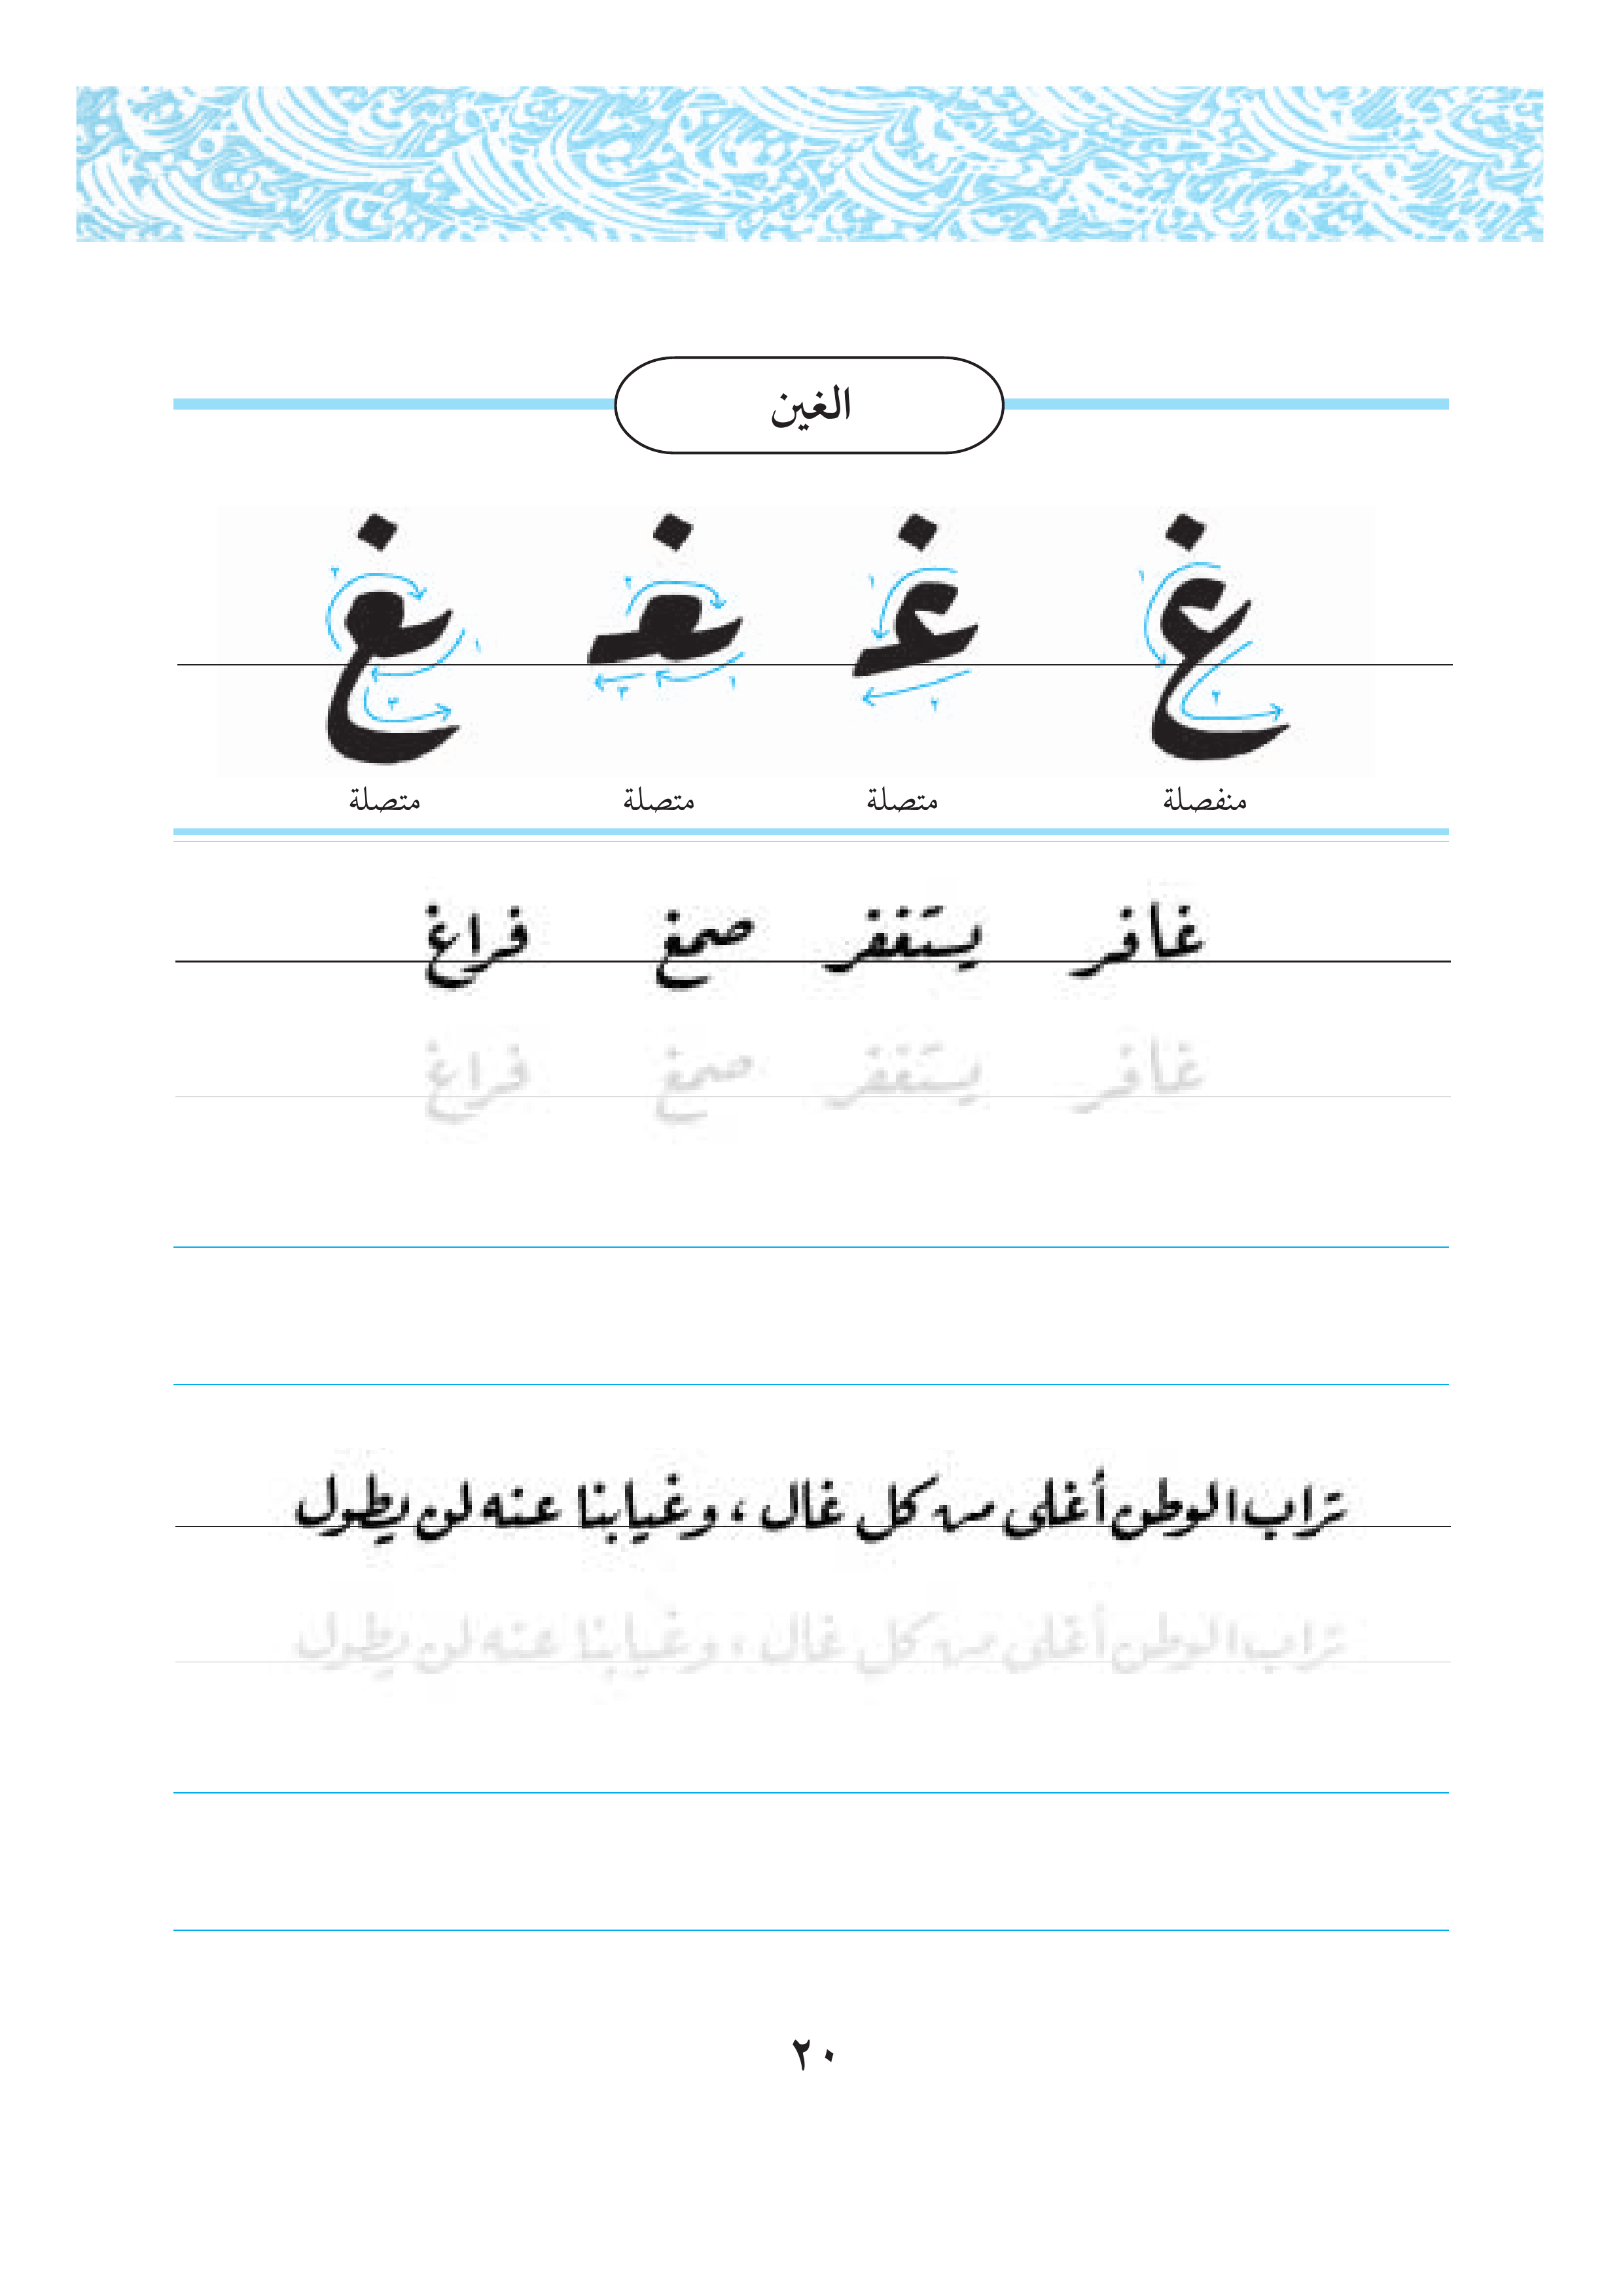 الغين
غ غـ ـغـ ـغ
١ ٢ ١ ٢ ١ ٢ ٣ ١ ٢ ٣
منفصلة متصلة متصلة متصلة
غافر يستغفر صمغ فراغ
غافر يستغفر صمغ فراغ
تراب الوطن أغلى من كل غال ، وغيابنا عنه لن يطول
تراب الوطن أغلى من كل غال ، وغيابنا عنه لن يطول
٢٠